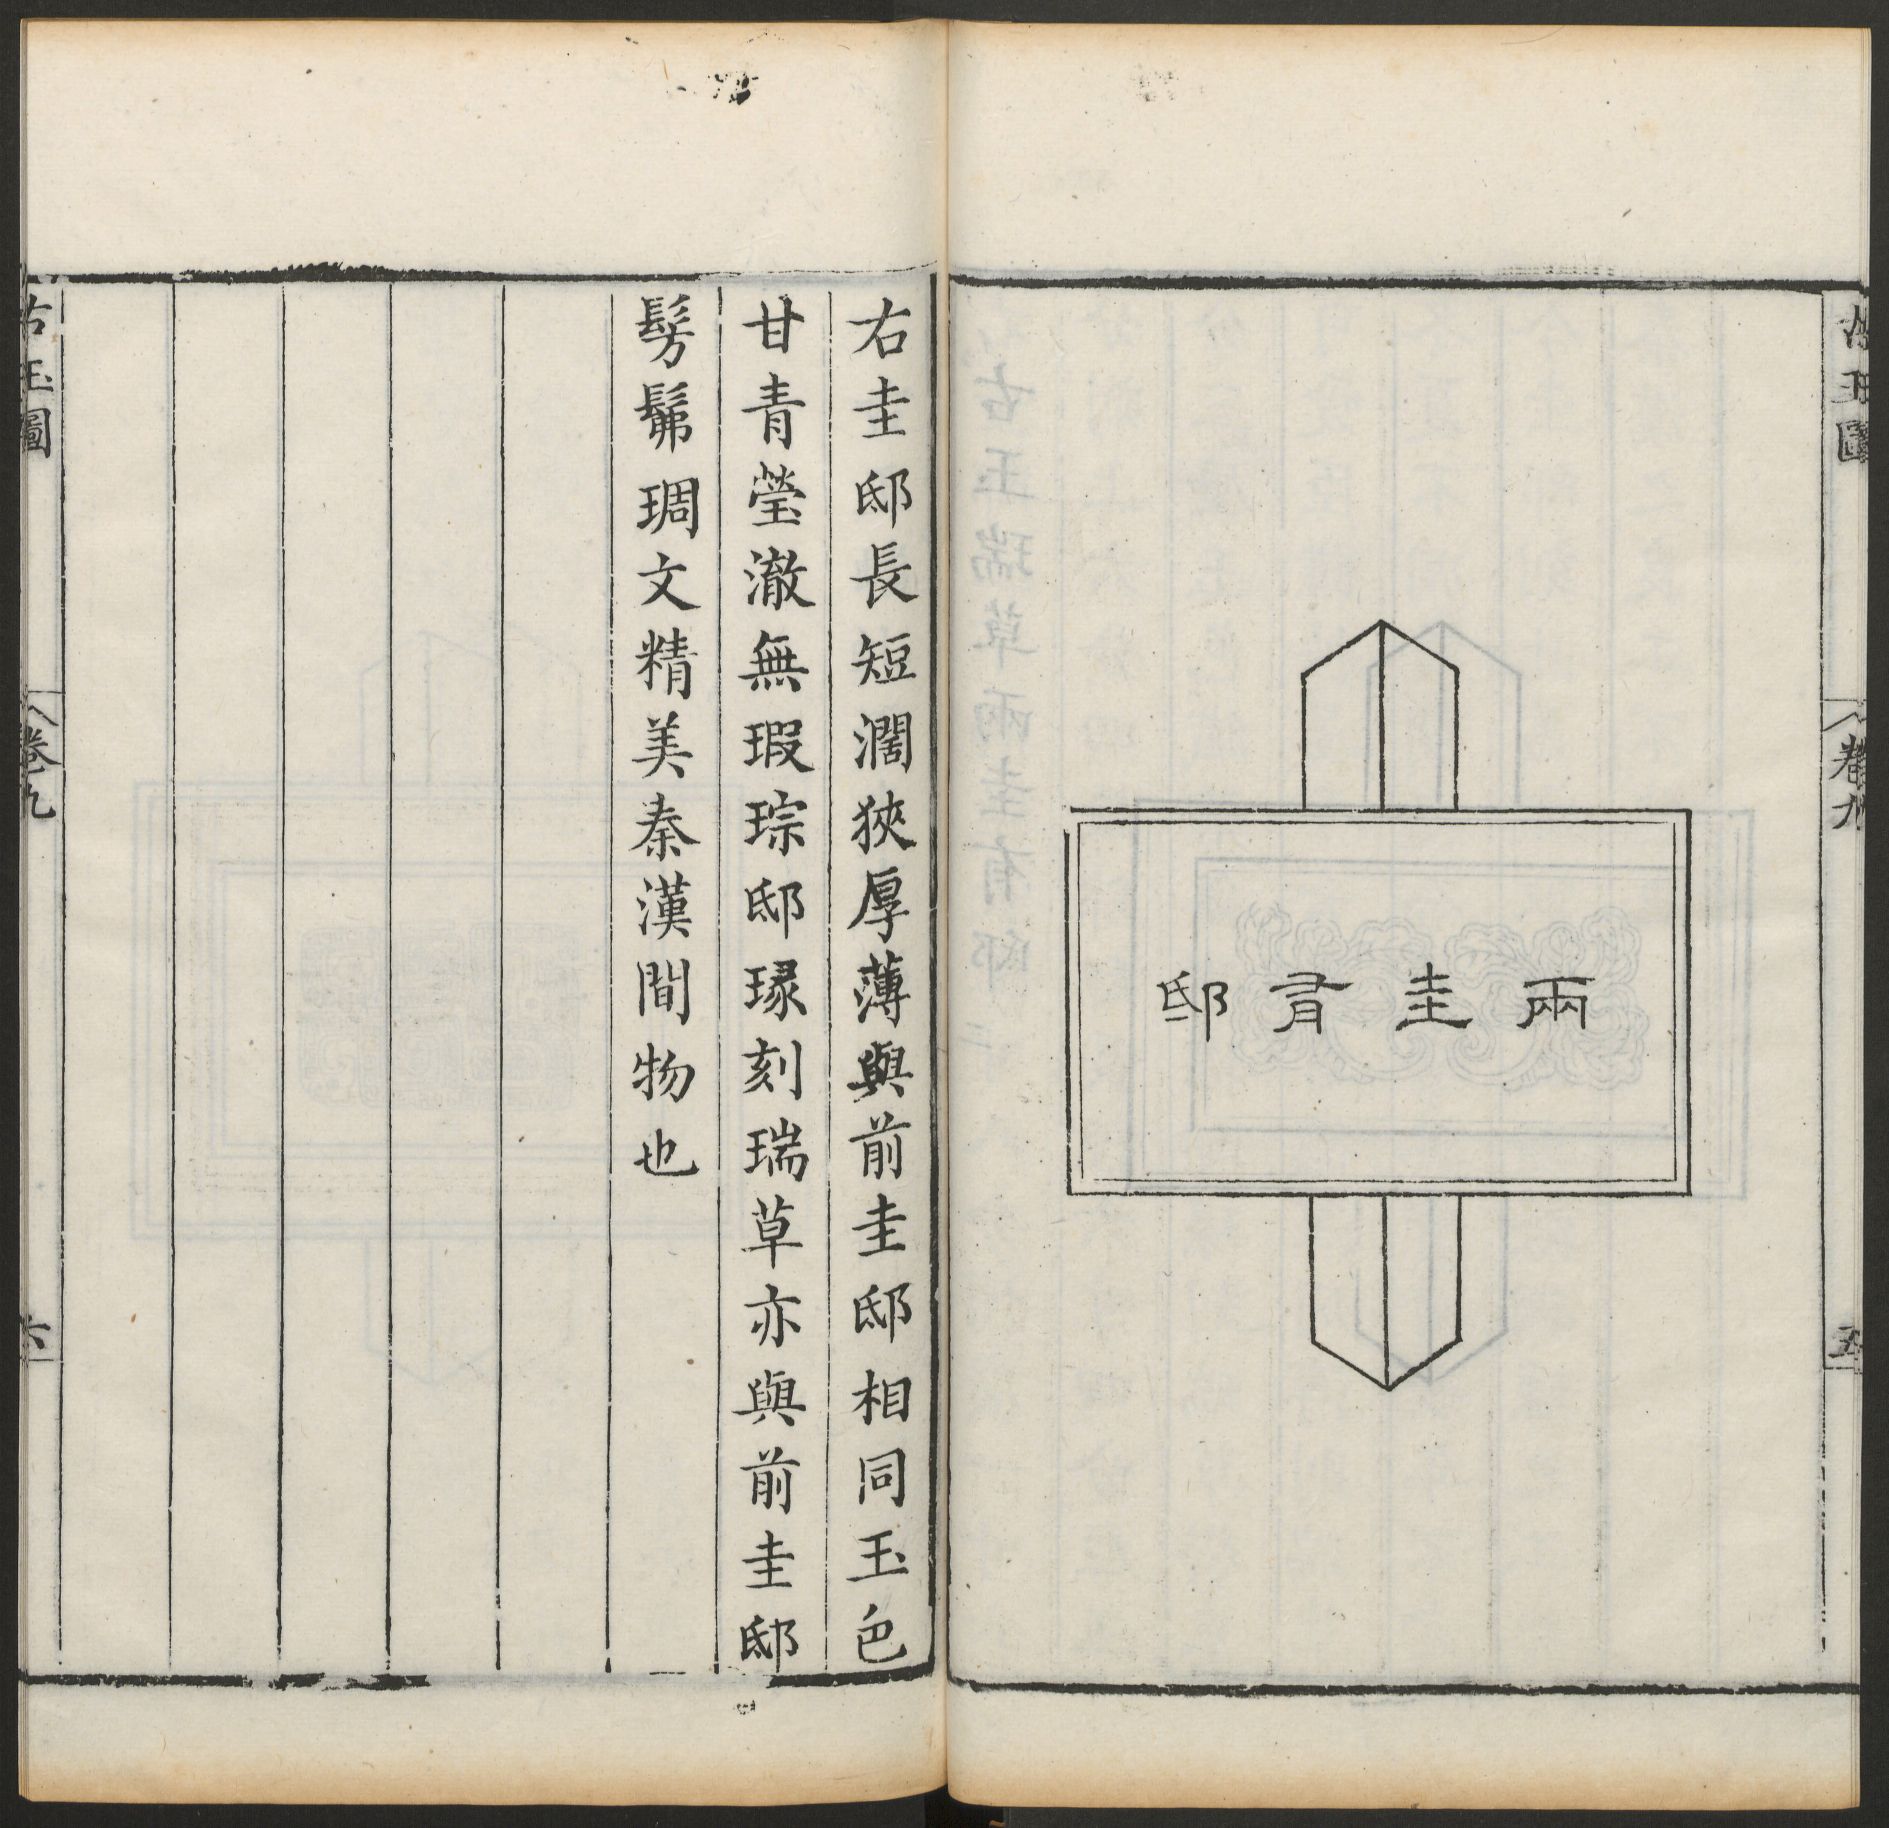 古玉圖
卷九
五
兩圭有邸
右圭邸長短濶狹厚薄與前圭邸相同玉色
甘青瑩澈無瑕琮邸瑑刻瑞草亦與前圭邸
髣髴琱文精美秦漢間物也
古玉圖
卷九
六